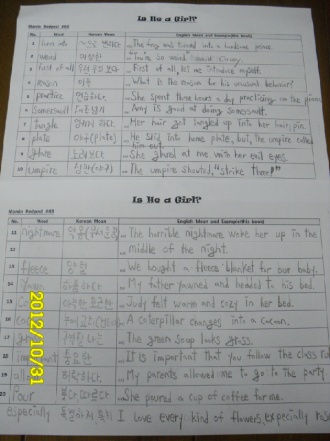 Is He a Girl?
No. Word Korean Mean English Mean and Example(this book)
1 turn into The frog was turned into a handsome prince.
2 weird 이상한 weird"
3 first of all First of all, let me introduce myself.
4 이유 What is the reason for his unusual behavior?
5 practice 연습하다. She spent three hours a day practicing on the piano
6 Somersault Amy is good at doing somersault.
7 tangle Her hair got tangled up into her hairpin.
8 plate He slid into home plate, but, the umpire called him out.
9 glare 노려보다 She glared at me with her evil eyes.
10 umpire 심판(야구) The umpire shouted, "strike three!"
Is He a Girl?
No. Word Korean Mean English Mean and Example(this book)
11 nightmare The horrible nightmare woke her up in the
12 middle of the night.
13 fleece 양털 We bought a fleece blanket for our baby.
14 Yawn 하품하다 My father yawned and headed to his bed.
15 Judy felt warm and cozy in her bed.
16 A caterpillar changes into a cocoon.
17 The green soup looks gross.
18 중요한 It is important that you follow the class rul
19 허락하다. My parents allowed me to go to the party
20 Pour 붓다 따르다 She poured a cup of coffee for me.
especially 특별하게, 특히 I love every kind of flowers, especially rose
2012/10/31